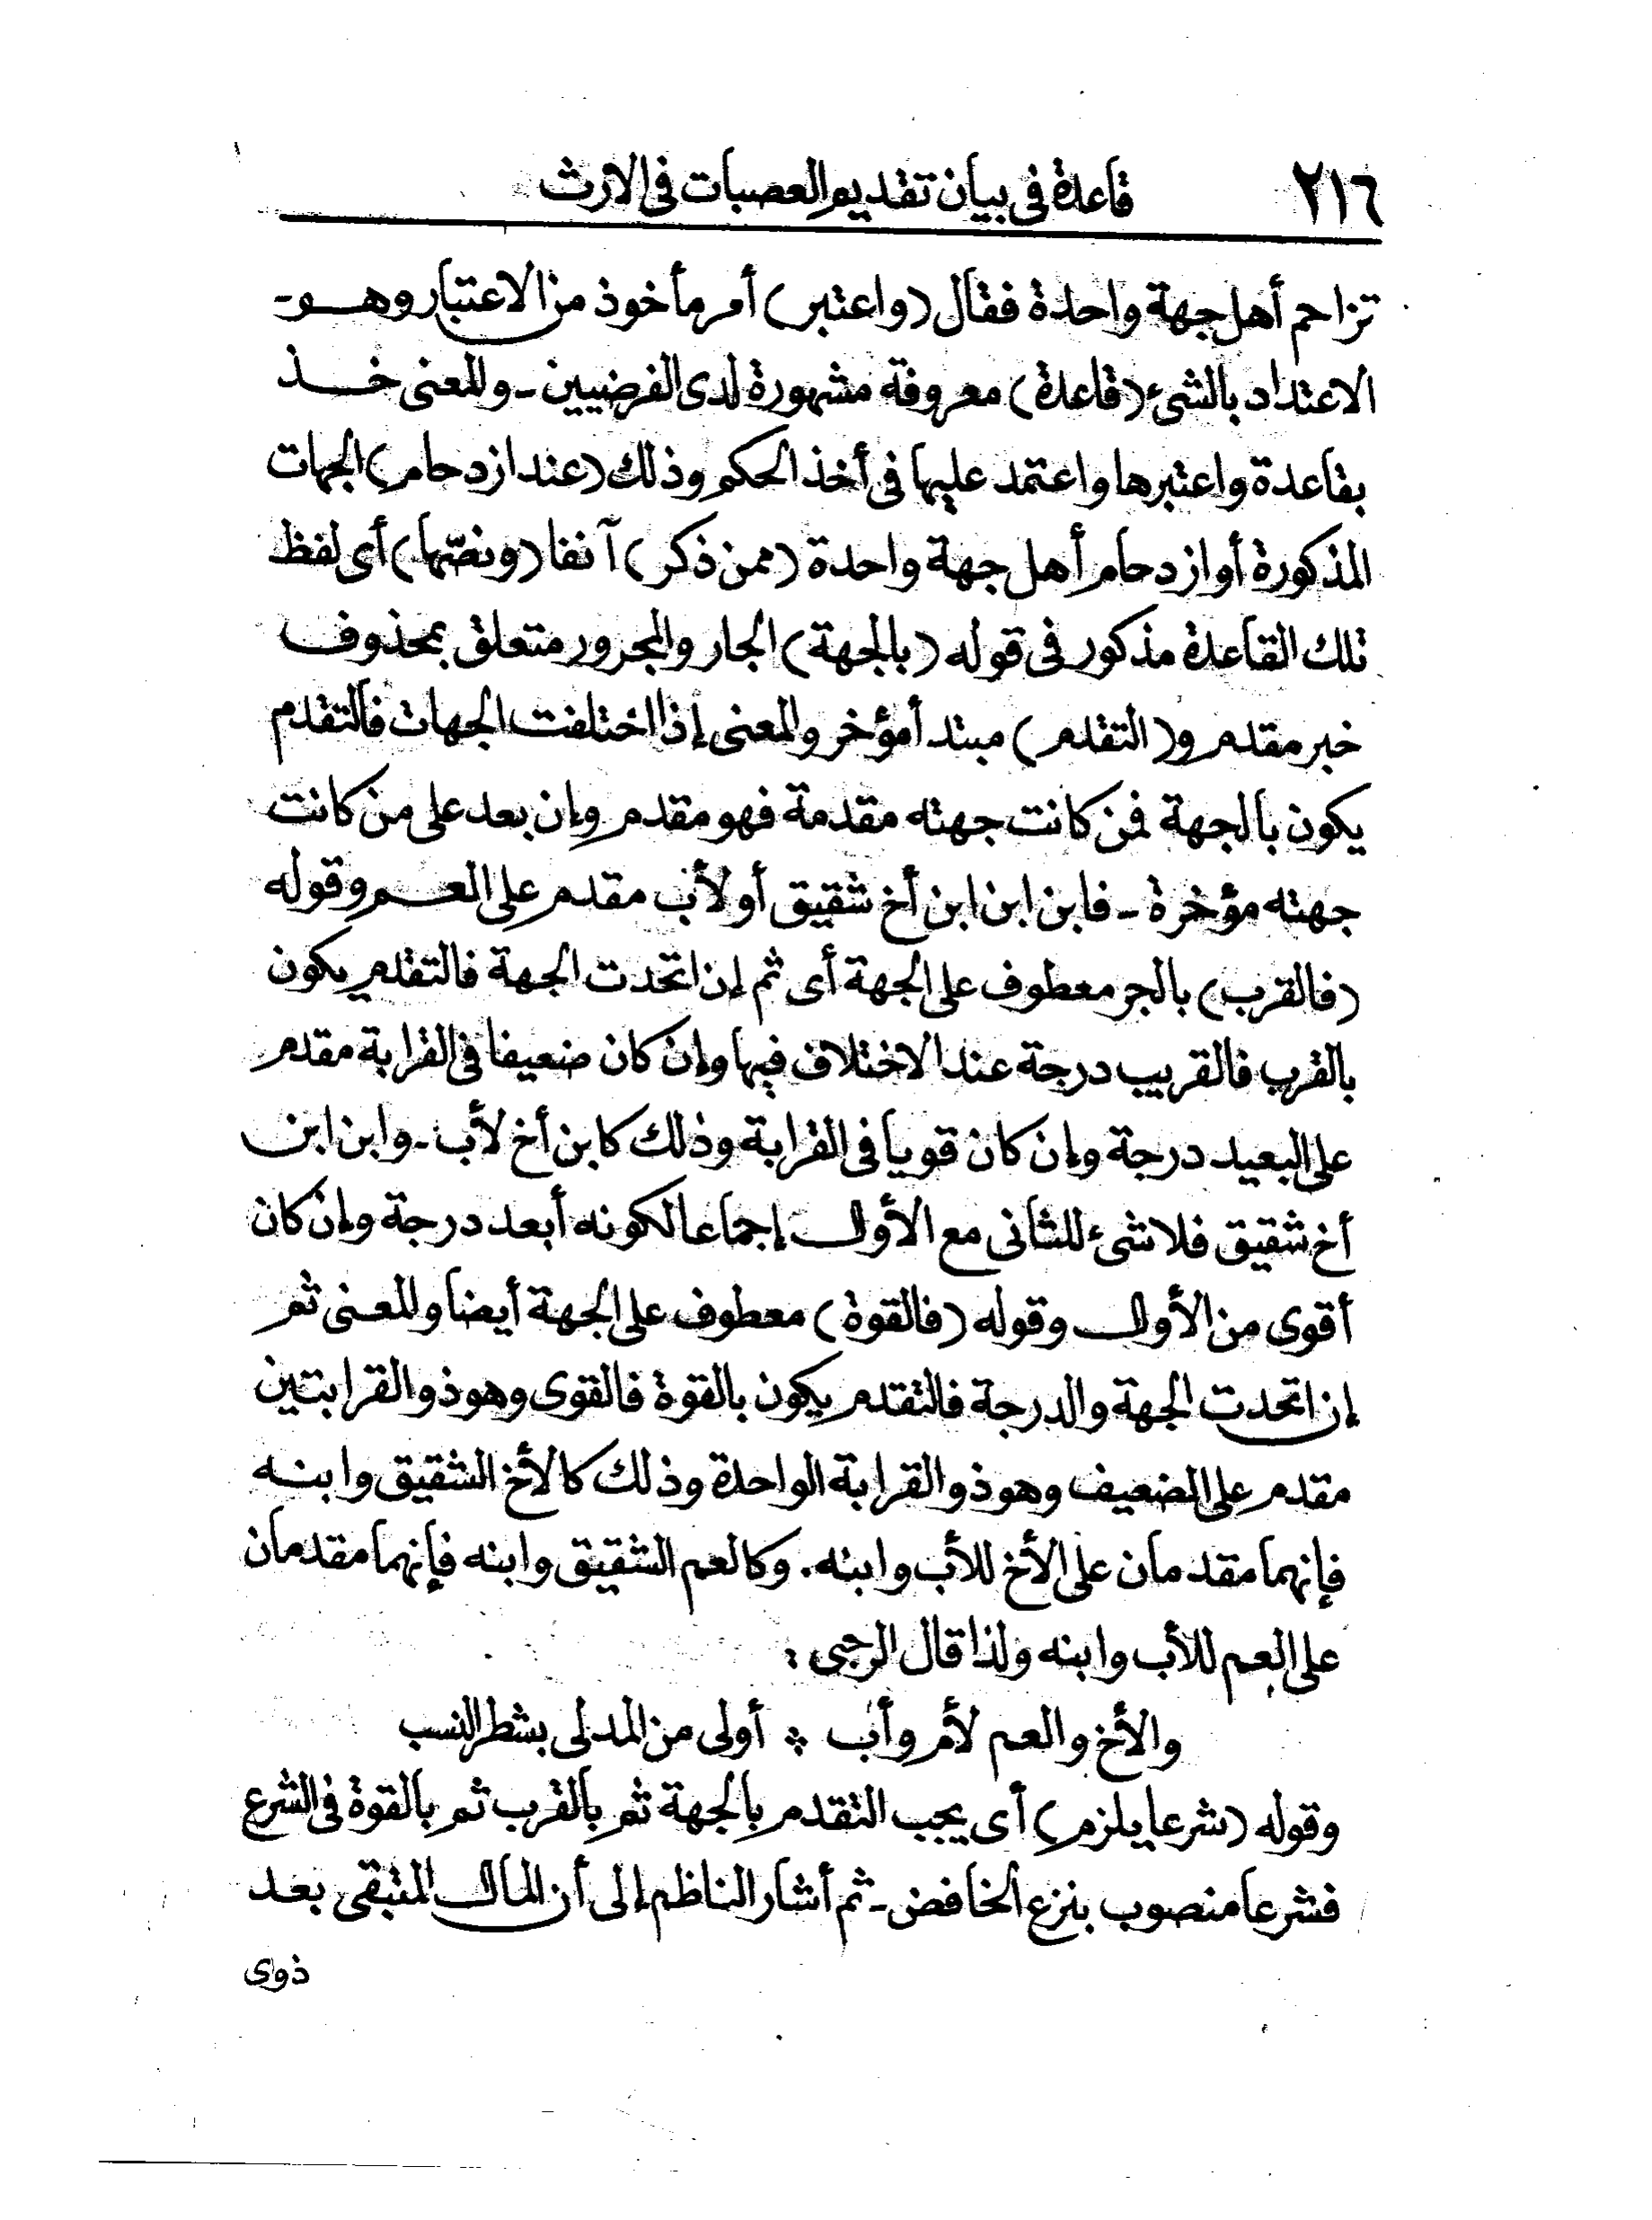 ٢١٦ قاعدة فى بيان تقديم العصبات فى الارث
تزاحم أهل جهة واحدة فقال (واعتبر) أمر مأخوذ من الاعتبار وهو -
الاعتداد بالشىء (قاعدة) معروفة مشهورة لدى الفرضيين - والمعنى خذ
بقاعدة واعتبرها واعتمد عليها فى أخذ الحكم وذلك (عند ازدحام) الجهات
المذكورة أو ازدحام أهل جهة واحدة (ممن ذكر) آنفا (ونصّها) أى لفظ
تلك القاعدة مذكور فى قوله (بالجهة) الجار والمجرور متعلق بمحذوف
خبر مقدم و(التقدم) مبتدأ مؤخر والمعنى إذا اختلفت الجهات فالتقدم
يكون بالجهة فمن كانت جهته مقدمة فهو مقدم وإن بعد على من كانت
جهته مؤخرة - فابن ابن ابن أخ شقيق أو لأب مقدم على العم وقوله
(فالقرب) بالجر معطوف على الجهة أى ثم إن اتحدت الجهة فالتقدم يكون
بالقرب فالقريب درجة عند الاختلاف فيها وإن كان ضعيفا فى القرابة مقدم
على البعيد درجة وإن كان قويا فى القرابة وذلك كابن أخ لأب - وابن ابن
أخ شقيق فلا شىء للثانى مع الأول إجماعا لكونه أبعد درجة وإن كان
أقوى من الأول وقوله (فالقوة) معطوف على الجهة أيضا والمعنى ثم
إن اتحدت الجهة والدرجة فالتقدم يكون بالقوة فالقوى وهو ذو القرابتين
مقدم على الضعيف وهو ذو القرابة الواحدة وذلك كالأخ الشقيق وابنه
فإنهما مقدمان على الأخ للأب وابنه. وكالعم الشقيق وابنه فإنهما مقدمان
على العم للأب وابنه ولذا قال الرحبى :
والأخ والعم لأم وأب ❖ أولى من المدلى بشطر النسب
وقوله (شرعا يلزم) أى يجب التقدم بالجهة ثم بالقرب ثم بالقوة فى الشرع
فشرعا منصوب بنزع الخافض - ثم أشار الناظم إلى أن المال المتبقى بعد
ذوى